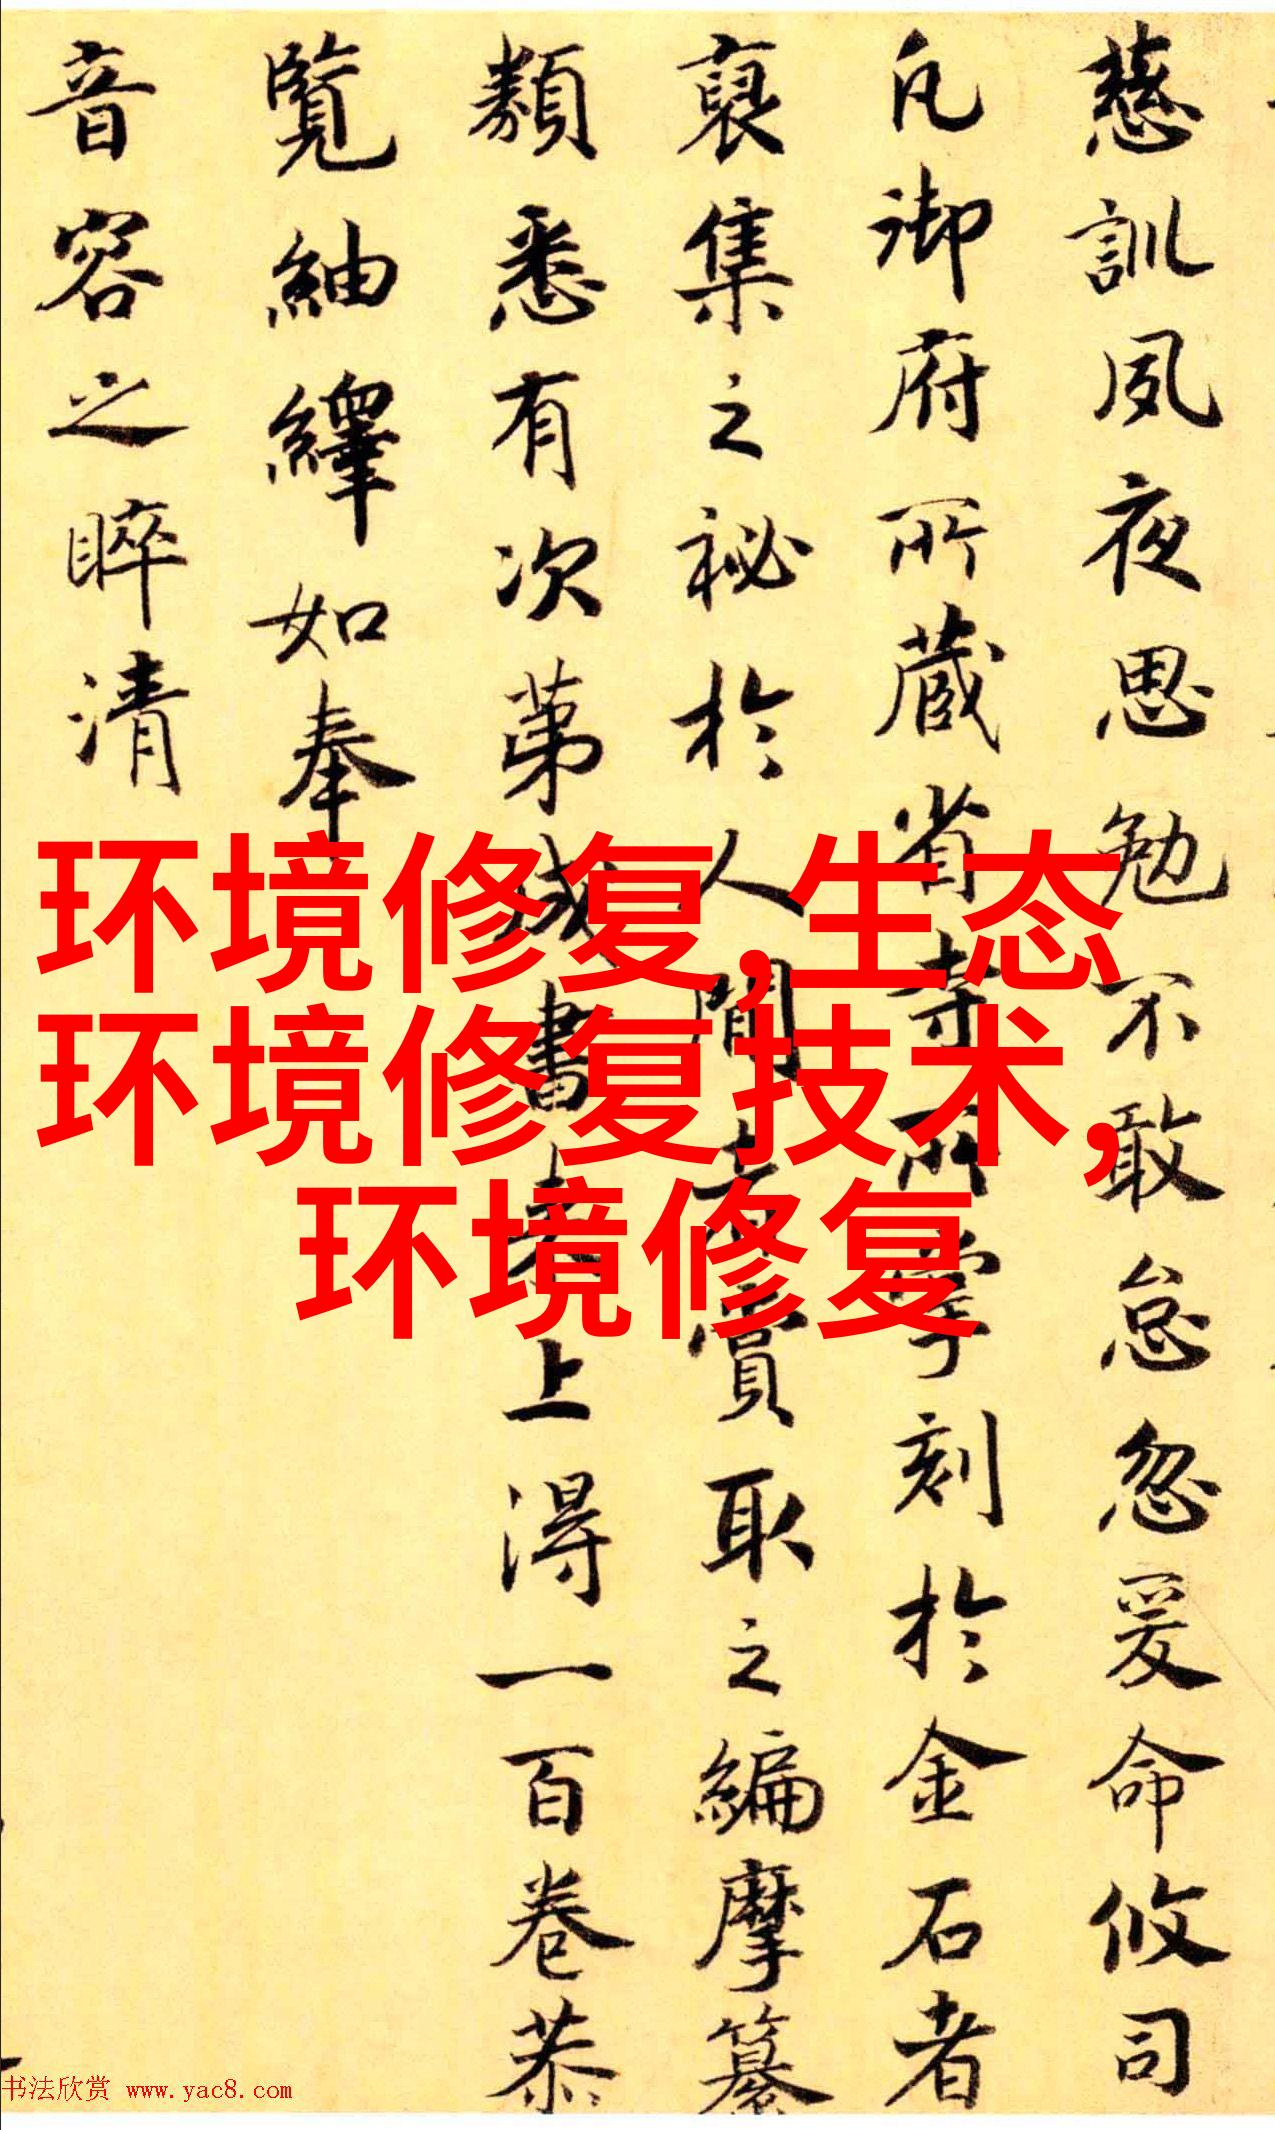 慈訓夙夜思勉不敢怠忽爰命攸司
凡御府所藏省寺所掌刻於金石者
裒集之祕於人間者賞取之編摩纂
類悉有次第成書來上得一百卷恭
覽紬繹如奉
音容之睟清
环境修复,生态
环境修复技术,
环境修复
书法欣赏 www.yac8.com